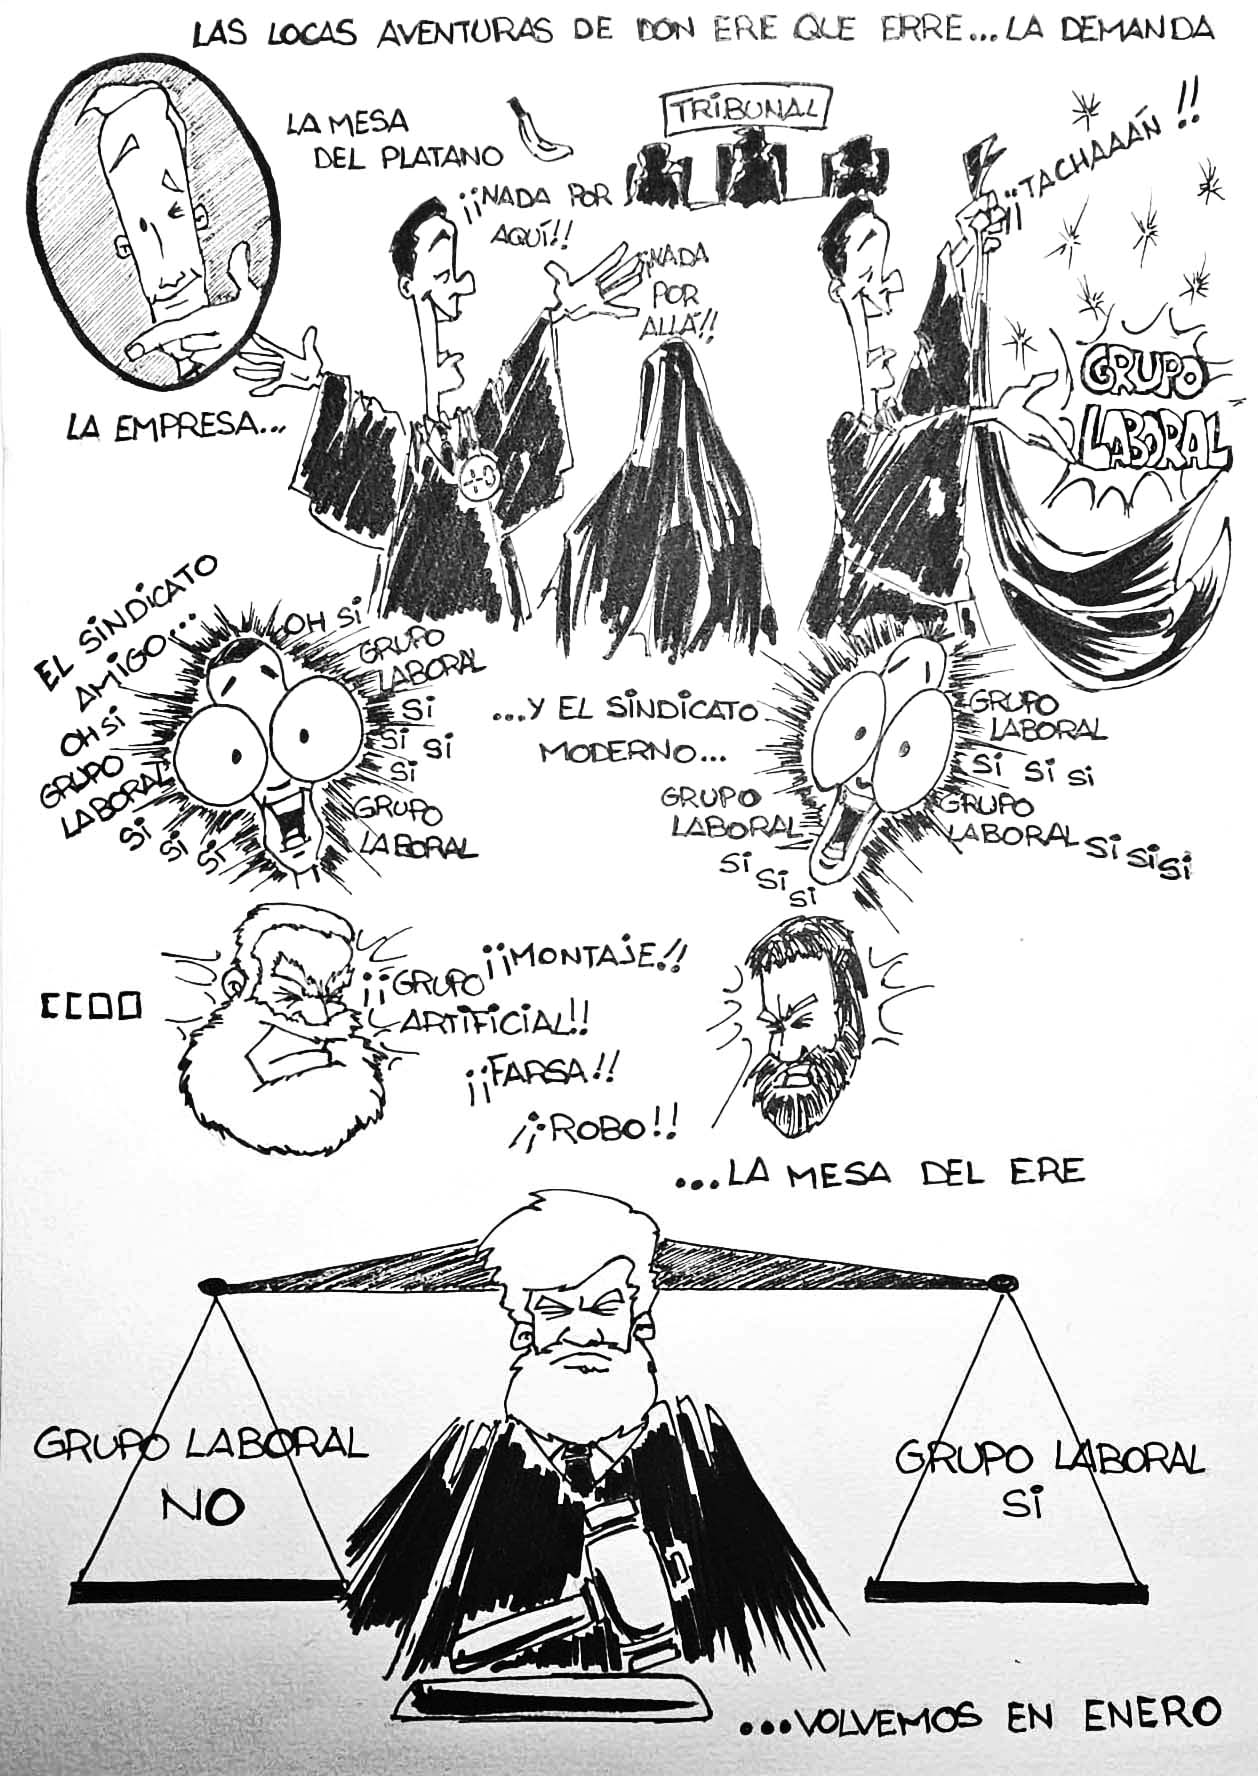 LAS LOCAS AVENTURAS DE DON ERE QUE ERRE... LA DEMANDA
LA MESA
DEL PLATANO
TRIBUNAL
¡¡TACHAAAÁN!!
¡¡NADA POR
AQUÍ!!
¡NADA
POR
ALLÁ!!
GRUPO
LABORAL
LA EMPRESA...
EL SINDICATO
AMIGO...
OH SI
GRUPO
LABORAL
SI
SI SI
SI
GRUPO
LABORAL
OH SI
GRUPO
LABORAL
SI
SI
SI
...Y EL SINDICATO
MODERNO...
GRUPO
LABORAL
SI SI SI
GRUPO
LABORAL SI SI SI
GRUPO
LABORAL
SI
SI
SI
CCOO
¡¡MONTAJE!!
¡¡GRUPO
ARTIFICIAL!!
¡¡FARSA!!
¡¡ROBO!!
...LA MESA DEL ERE
GRUPO LABORAL
NO
GRUPO LABORAL
SI
...VOLVEMOS EN ENERO